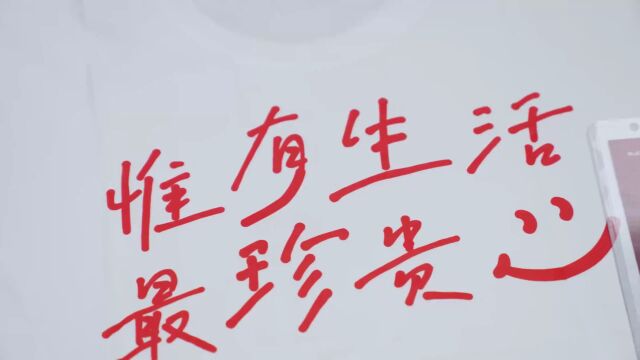 惟有生活
最珍贵